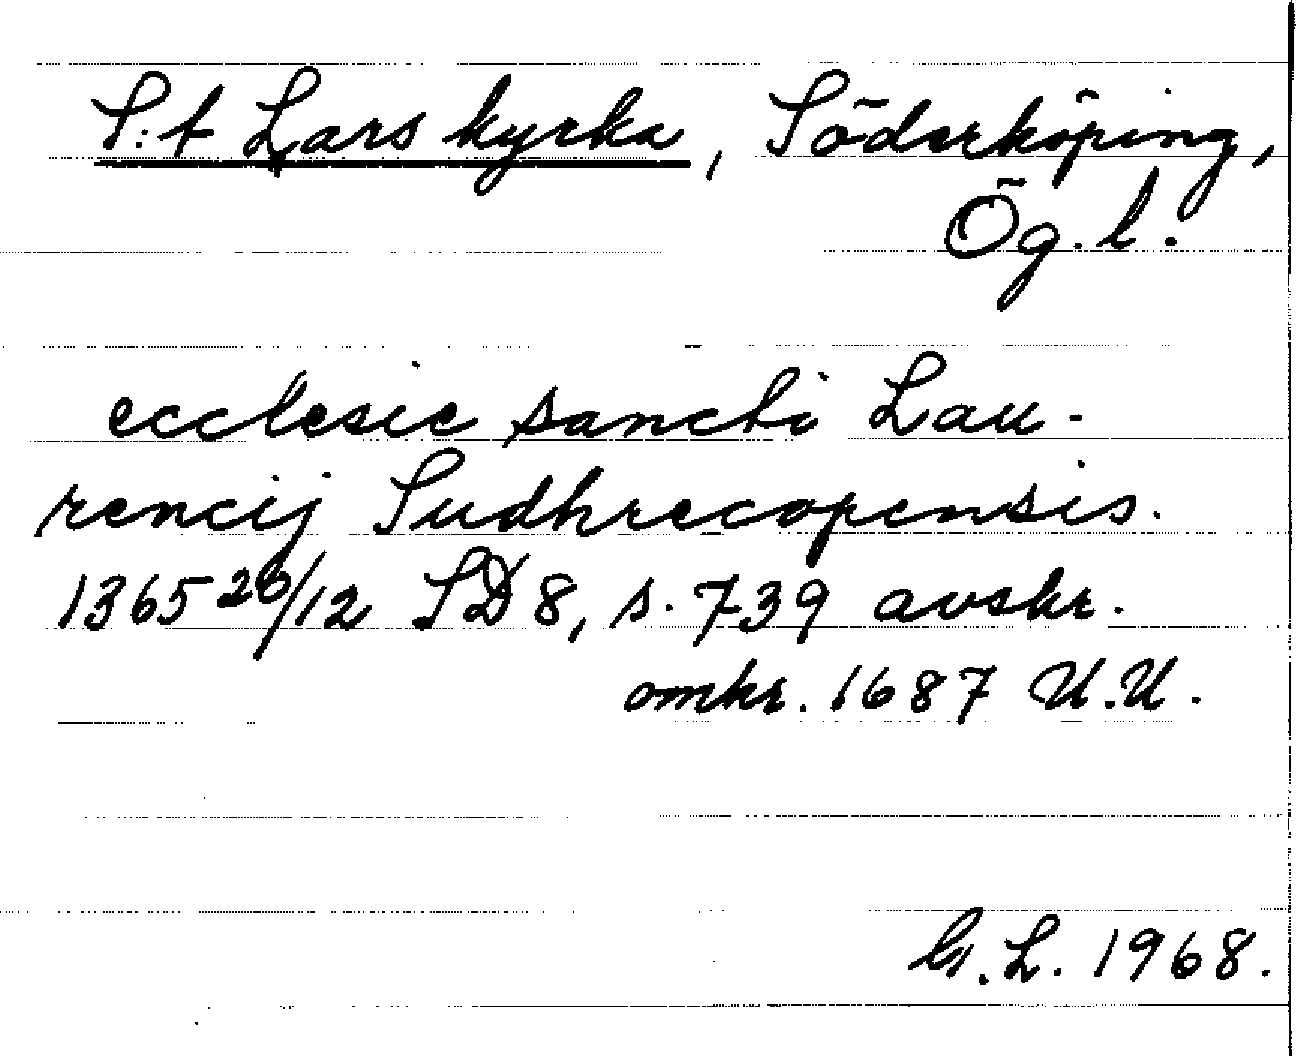 S:t Lars kyrka, Söderköping,
Ög. l.
ecclesie sancti Lau-
rencij Sudhrecopensis.
1365 20/12 SD 8, s. 739 avskr.
omkr. 1687 U.U.
G.L. 1968.